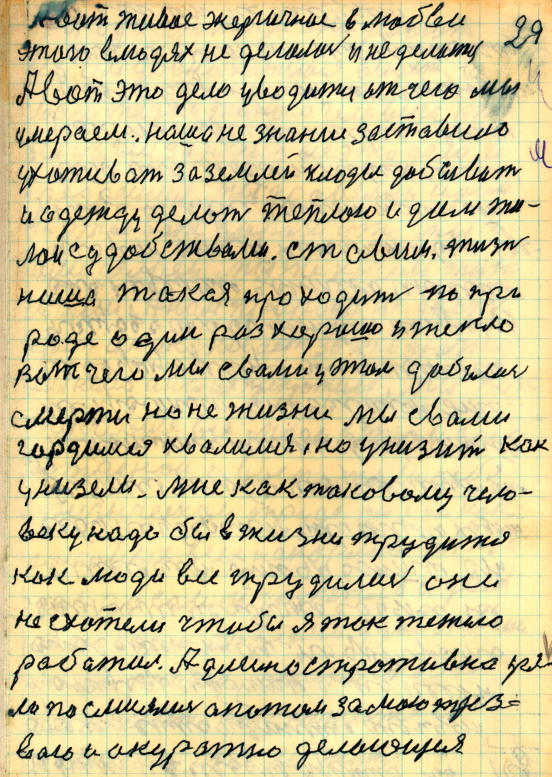 А вот живое энергичное в любви 29
этого в людях не делалос и не делаитц
А вот это дело уводити от чего мы
умераем. наша не знания заставило
ухаживат за землей плоды добыват
и одежду делат теплою и дом жи-
лой судобствами. с тсвыи. жизн
наша такая проходит по при
роде один раз хорошо и тепло
вот чего мы с вами у этом добилис
смерти но не жизни мы с вами
гордимся хвалимся, но унизит как
унизели. мне как таковому чело-
веку надо бы в жизни трудится
как люди все трудилис они
не схотели чтобы я так тежело
работал. Админостротивна
ло послиялия а потом за мою трез=
вою и окуратно делающия